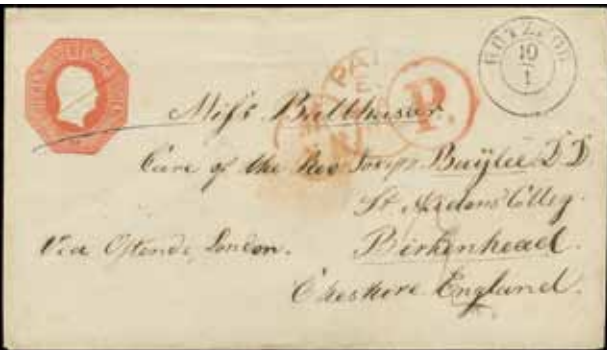 BÜTZOW
10
1
PAID
P.
Miss Balthasar.
Care of the Rev Joseph Baylee D D
St Aidans Colleg.
Via Ostende, London.
Birkenhead.
Cheshire England.